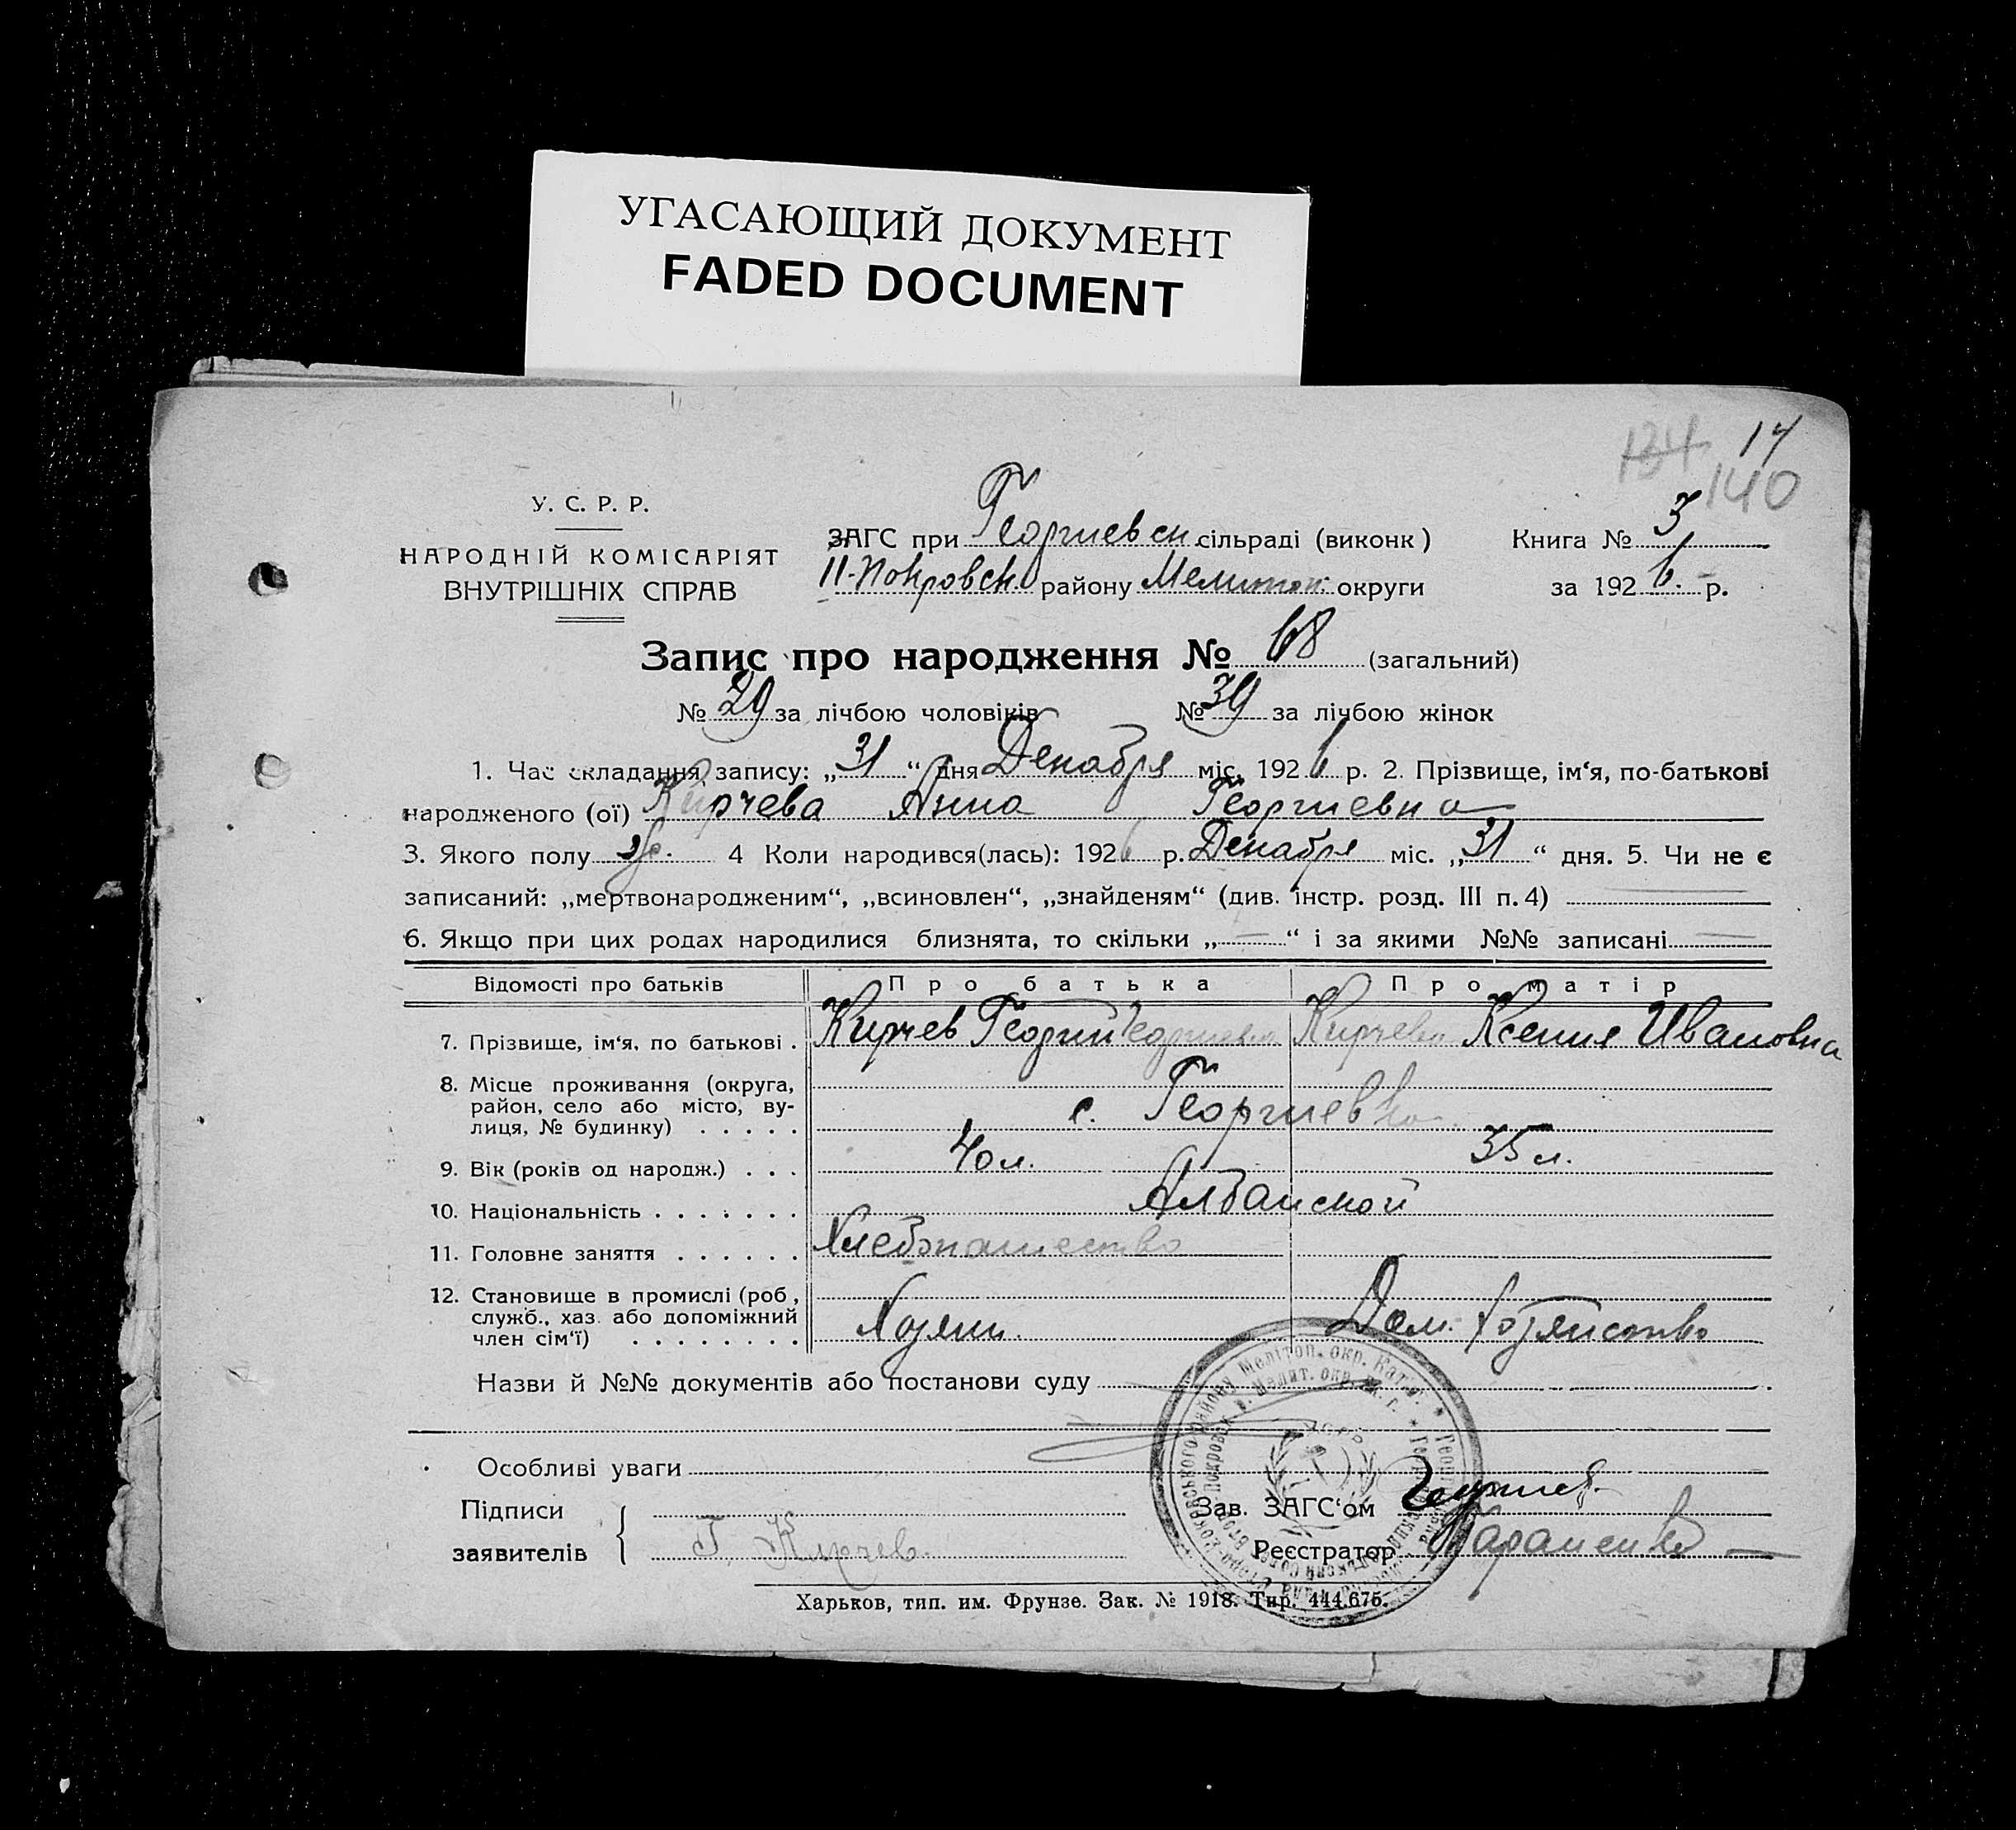 УГАСАЮЩИЙ ДОКУМЕНТ
FADED DOCUMENT
134 14
140
У. С. Р. Р.
НАРОДНІЙ КОМІСАРІЯТ
ВНУТРІШНІХ СПРАВ
ЗАГС при Георгиевск сільраді (виконк)
П-Покровск. району Мелитоп. округи
Книга № 3
за 1926 р.
Запис про народження № 68 (загальний)
№ 29 за лічбою чоловіків № 39 за лічбою жінок
1. Час складання запису: „31“ дня Декабря міс. 1926 р. 2. Прізвище, ім‘я, по-батькові
народженого (ої) Кирчева Анна Георгиевна
3. Якого полу ж. 4 Коли народився(лась): 1926 р. Декабря міс. „31“ дня. 5. Чи не є
записаний: „мертвонародженим“, „всиновлен“, „знайденям“ (див. інстр. розд. III п. 4)
6. Якщо при цих родах народилися близнята, то скільки „—“ і за якими №№ записані —
Відомості про батьків Про батька Про матір
7. Прізвище, ім‘я, по батькові . Кирчев Георгий Георгиевич Кирчева Ксения Ивановна
8. Місце проживання (округа,
район, село або місто, ву-
лиця, № будинку) . . . . . с. Георгиевка
9. Вік (років од народж.) . . . 40 л. 35 л.
10. Національність . . . . . . . Албанской
11. Головне заняття . . . . . . Хлебопашество
12. Становище в промислі (роб.,
служб., хаз. або допоміжний
член сім‘ї) . . . . . . . . Хозяин. Дом. Хозяйство
Назви й №№ документів або постанови суду
Особливі уваги
Підписи
заявителів
Г. Кирчев.
Зав. ЗАГС‘ом
Реєстратор
Харьков, тип. им. Фрунзе. Зак. № 1918. Тир. 444.675.